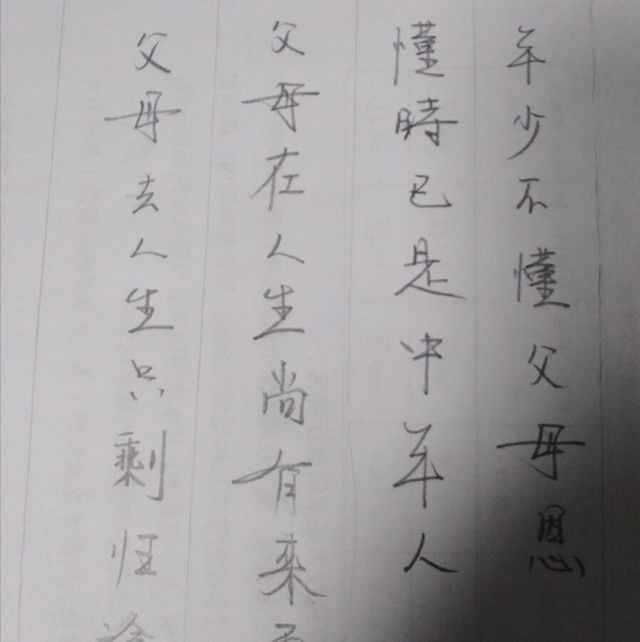 年少不懂父母恩
懂時已是中年人
父母在人生尚有来
父母去人生只剩归途